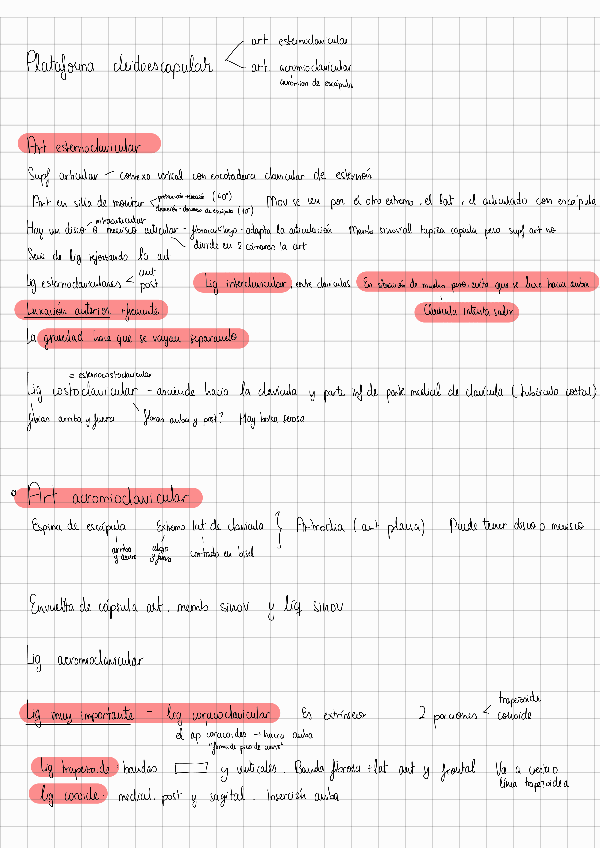 Plataforma cleidoescapular
art esternoclavicular
art acromioclavicular
Art esternoclavicular
Supf articular - convexo vertical con escotadura clavicular de esternón
Art en silla de montar (40º) (10º) Mov se ven por el otro extremo, el lat, el articulado con escápula
Hay un disco o menisco articular - adapta la articulación Memb sinovial tapiza capsula pero supf art no
intraarticular
divide en 2 cámaras la art
Serie de lig reforzando la art
Lig esternoclaviculares ant post
Lig interclavicular, entre claviculas
En situación de mucho peso, evita que se luxe hacia arriba
Luxación anterior
Clavícula intenta salir
La gravedad hace que se vayan separando
= esternocostoclavicular
Lig costoclavicular - asciende hacia la clavícula y parte inf de parte medial de clavícula (tubérculo costal)
fibras arriba y fuera fibras arriba y post? Hay bolsa serosa
Art acromioclavicular
Espina de escápula Extremo lat de clavícula Artrodia (art plana) Puede tener disco o menisco
arriba abajo cortado en bisel
Envuelta de cápsula art, memb sinov y liq sinov
Lig acromioclavicular
Lig muy importante - lig coracoclavicular Es extrínseco 2 porciones trapezoide conoide
ap coracoides → hacia arriba
"forma de pico de cuervo"
Lig trapezoide: bandas y verticales. Banda fibrosa + lat ant y frontal Va a cresta o
línea trapezoidea
Lig conoide: medial, post y sagital. Inserción arriba